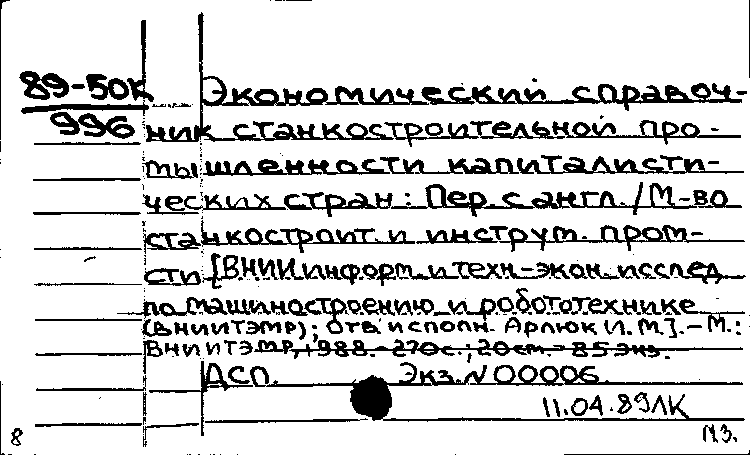 89-50К Экономический справоч-
996 ник станкостроительной про-
мышленности капиталисти-
ческих стран: Пер. с англ. /М-во
станкостроит. и инструм. пром-
сти [ВНИИ информ. и техн.-экон. исслед.
по машиностроению и робототехнике
(ВНИИТЭМР); Отв. исполн. Арлюк И.М.]. - М.:
ВНИИТЭМР, 1988. - 270с.; 20см. - 85 экз.
ДСП. Экз. N 00006.
11.04.89ЛК
8 П3.